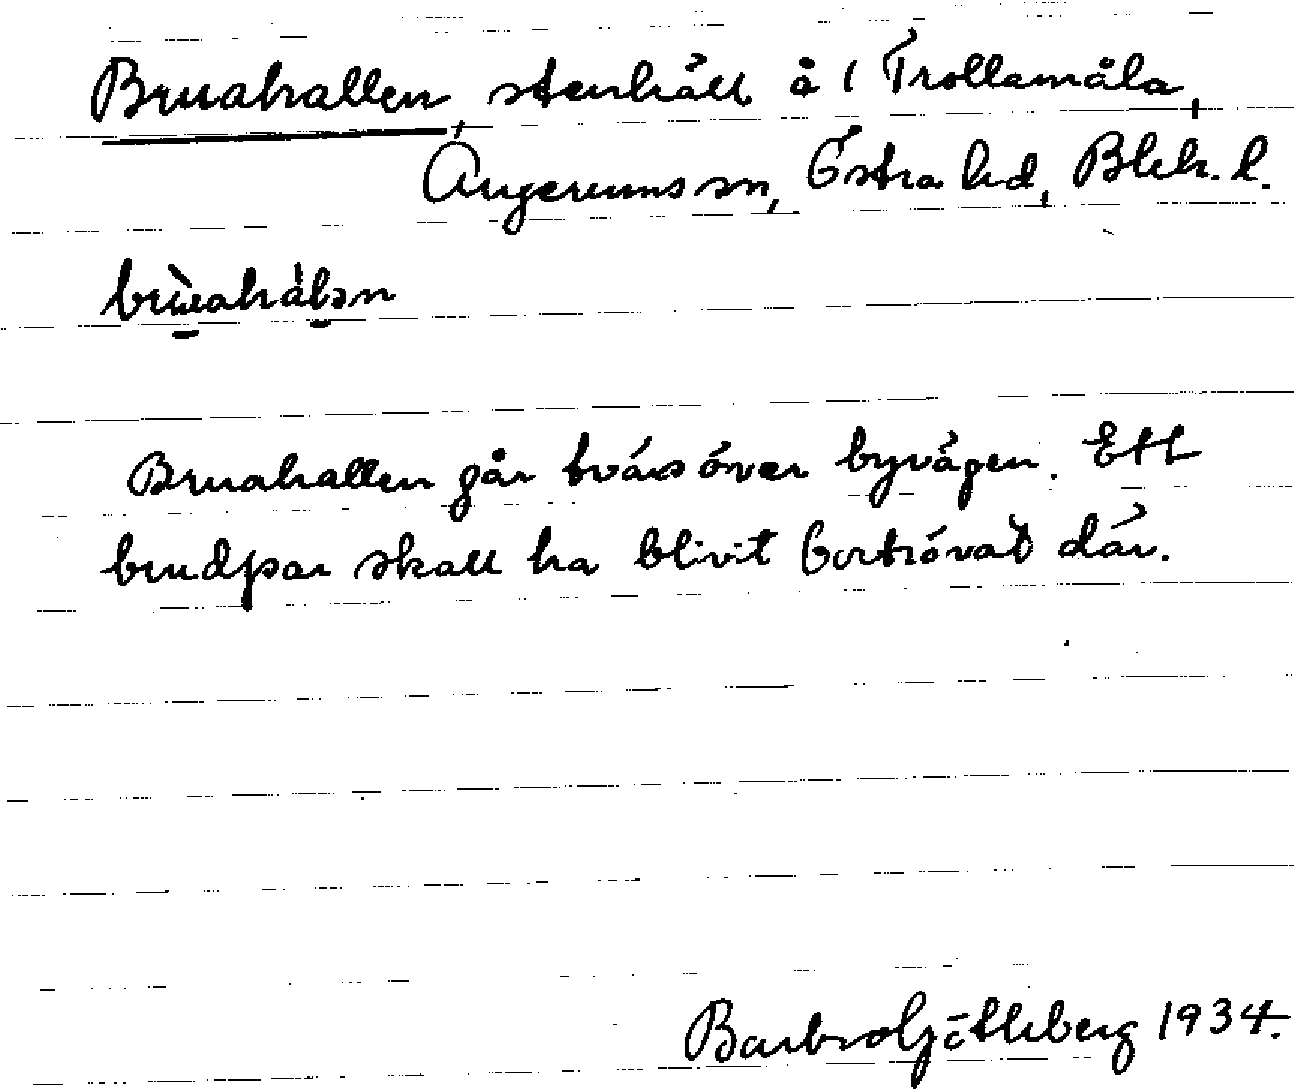 Bruahallen, stenhäll å 1 Trollamåla,
Åryerums sn, Östra hd, Blek. l.
brùahàlən
Bruahallen går tvärs över byvägen. Ett
brudpar skall ha blivit bortrövat där.
Barbro Götlberg 1934.